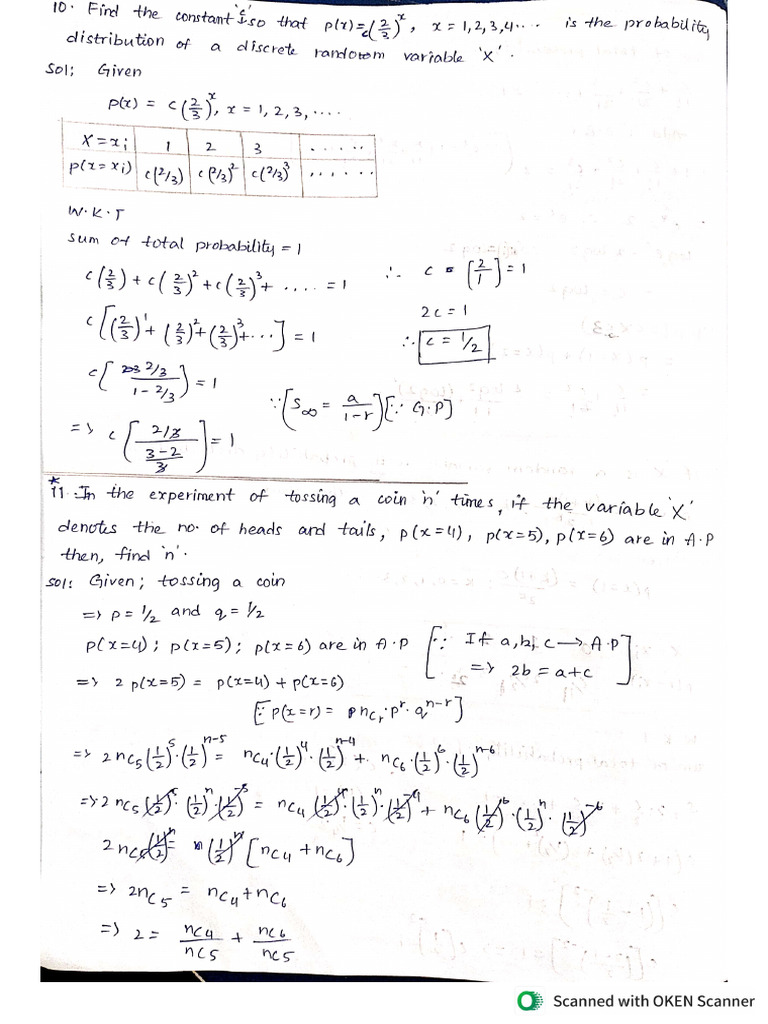 10. Find the constant 'c' so that p(x) = c(2/3)^x, x = 1,2,3,4.... is the probability
distribution of a discrete random variable 'X'.
Sol; Given
p(x) = c(2/3)^x, x = 1, 2, 3, ....
X = xi | 1 | 2 | 3 | .....
p(x = xi) | c(2/3) | c(2/3)^2 | c(2/3)^3 | ......
W.K.T
sum of total probability = 1
c(2/3) + c(2/3)^2 + c(2/3)^3 + .... = 1
c[(2/3)^1 + (2/3)^2 + (2/3)^3 + ...] = 1
c[(2/3)/(1 - 2/3)] = 1
∵ [S∞ = a/(1-r)] [∵ G.P]
=> c[(2/3)/((3-2)/3)] = 1
∴ c = [2/1] = 1
2c = 1
∴ c = 1/2
* 11. In the experiment of tossing a coin 'n' times, if the variable 'X'
denotes the no. of heads and tails, p(x=4), p(x=5), p(x=6) are in A.P
then, find 'n'.
sol: Given; tossing a coin
=> p = 1/2 and q = 1/2
p(x=4); p(x=5); p(x=6) are in A.P [∵ If a, b, c → A.P
=> 2b = a+c]
=> 2 p(x=5) = p(x=4) + p(x=6)
[∵ p(x=r) = nCr · p^r · q^(n-r)]
=> 2 nC5 (1/2)^5 · (1/2)^(n-5) = nC4 · (1/2)^4 · (1/2)^(n-4) + nC6 · (1/2)^6 · (1/2)^(n-6)
=> 2 nC5 (1/2)^5 · (1/2)^n · (1/2)^-5 = nC4 (1/2)^4 · (1/2)^n · (1/2)^-4 + nC6 (1/2)^6 · (1/2)^n · (1/2)^-6
2 nC5 (1/2)^n = (1/2)^n [nC4 + nC6]
=> 2nC5 = nC4 + nC6
=> 2 = nC4/nC5 + nC6/nC5
Scanned with OKEN Scanner